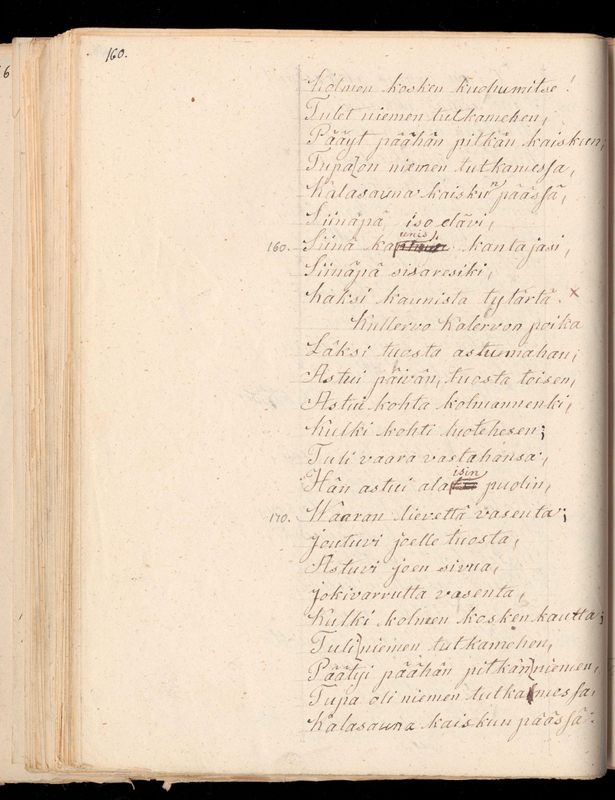 160.
Kolmen kosken kuohumitse!
Tulet niemen tutkamehen,
Pääyt päähän pitkän kaiskun;
Tupa on niemen tutkamessa,
Kalasauna kaiskun päässä,
Siinäpä iso elävi,
160. Siinä kaunis kantajasi,
Siinäpä sisaresiki,
Kaksi kaunista tytärtä. x
Kullervo Kalervon poika
Läksi tuosta astumahan,
Astui päivän, tuosta toisen,
Astui kohta kolmannenki,
Kulki kohti luotehesen;
Tuli vaara vastahansa,
Hän astui alaisin puolin,
170. Waaran lievettä vasenta;
Joutuvi joelle tuosta,
Astuvi joen sivua,
Jokivarrutta vasenta,
Kulki kolmen kosken kautta;
Tuli niemen tutkamehen,
Päätyi päähän pitkän niemen,
Tupa oli niemen tutkamessa,
Kalasauna kaiskun päässä.